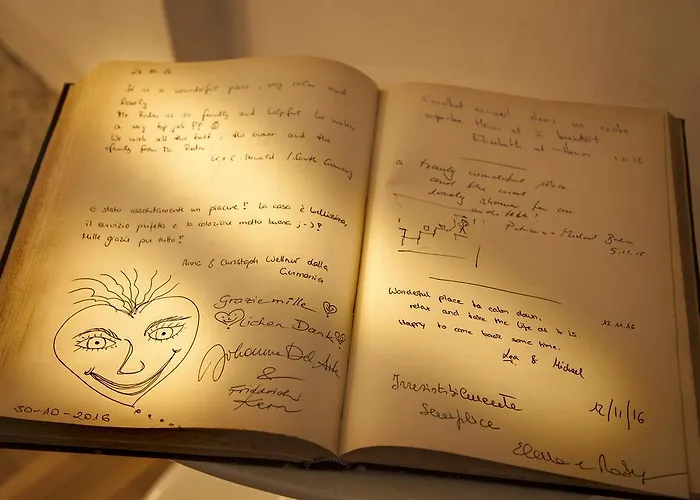 It is a wonderful place, very calm and
lovely
Mr Rider is so friendly and helpful he makes
a very top job!!
be with all the best, the owner and the
family from
K + C. /South Germany
è stato assolutamente un piacere! La casa è bellissima,
il servizio perfetto e la colazione molto buona ;-)?
Mille grazie per tutto!
Anna & Christoph Wellnur dalla
Germania
Grazie mille
lichen Dank!
Johanna Del
&
Friedrich
Kern
30-10-2016
Excellent accueil dans un cadre
superbe
Elisabeth et Henri
a truly wonderful place
and the most
lovely shower I'm
Michael
5.11.16
Wonderful place to calm down,
relax and take the life as it is.
Happy to come back some time.
12.11.16
Lea & Michael
Irresistibilmente
Semplice
12/11/16
Elena e